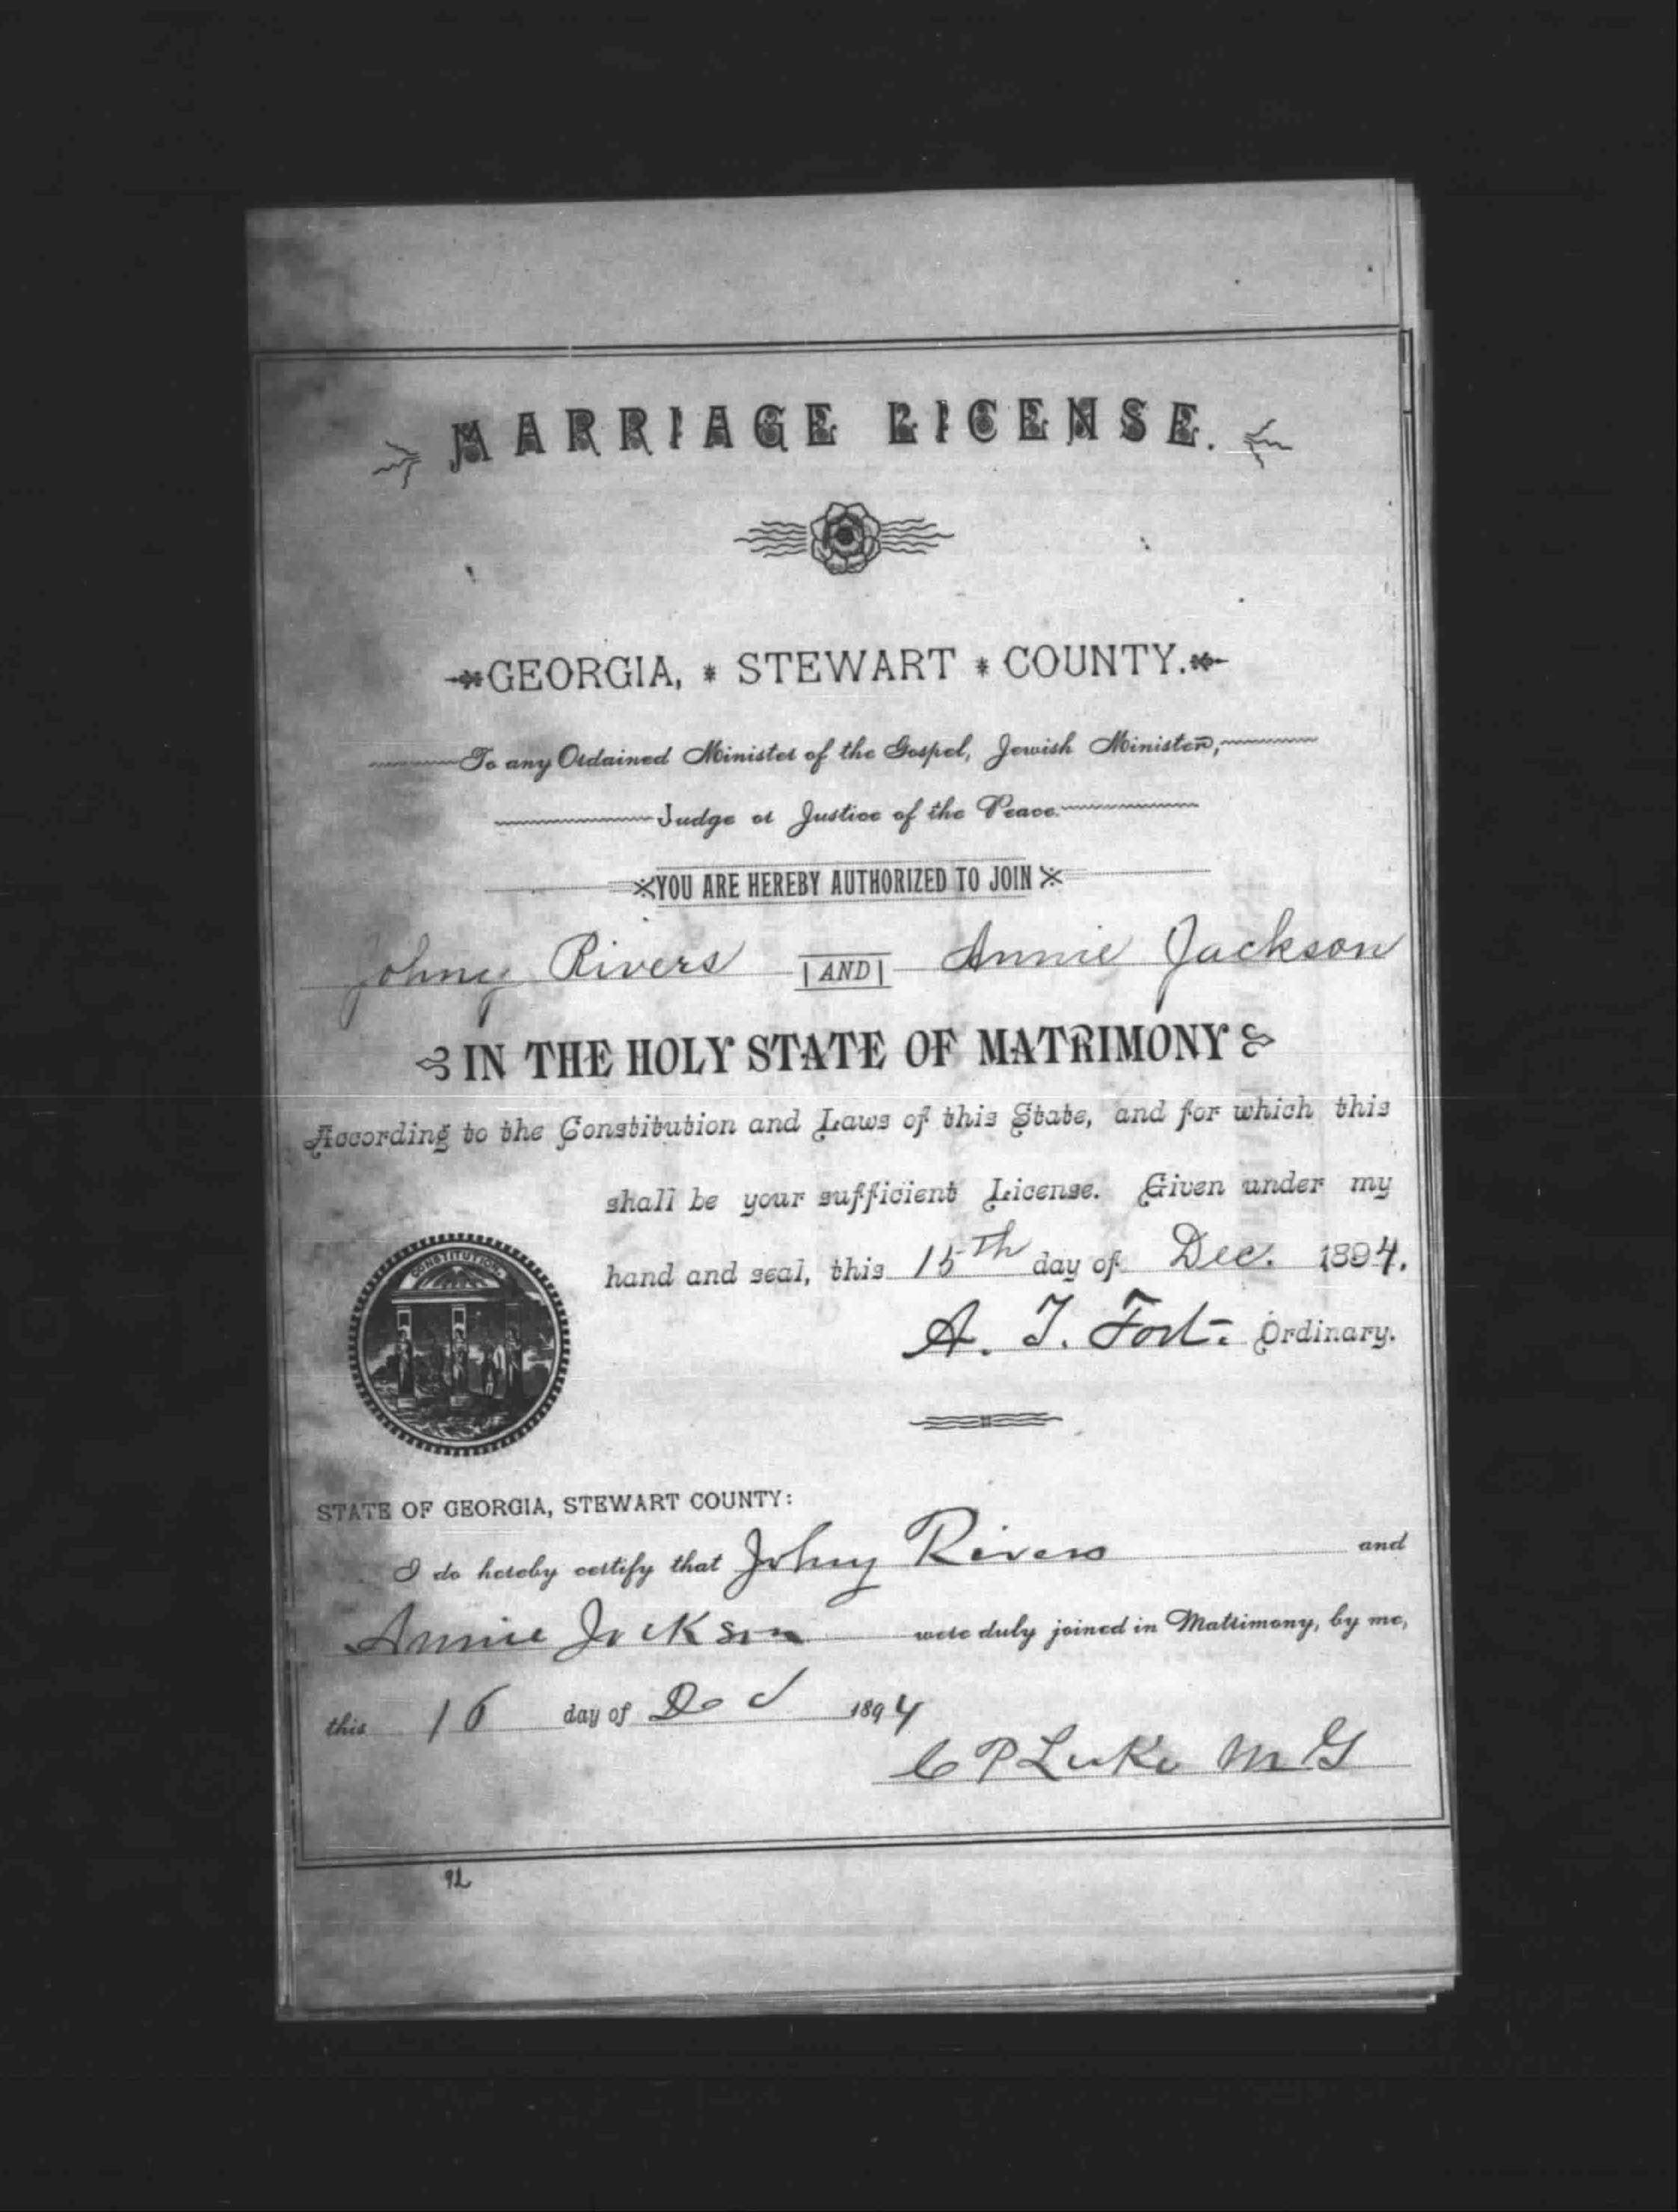 MARRIAGE LICENSE.
GEORGIA, * STEWART * COUNTY.
To any Ordained Minister of the Gospel, Jewish Minister,
Judge or Justice of the Peace.
YOU ARE HEREBY AUTHORIZED TO JOIN
Johny Rivers AND Annie Jackson
IN THE HOLY STATE OF MATRIMONY
According to the Constitution and Laws of this State, and for which this
shall be your sufficient License. Given under my
CONSTITUTION
hand and seal, this 15th day of Dec. 1894.
A. T. Fort Ordinary.
STATE OF GEORGIA, STEWART COUNTY:
I do hereby certify that Johny Rivers and
Annie Jackson were duly joined in Matrimony, by me,
this 16 day of Dec 1894
C P Luke M G
92